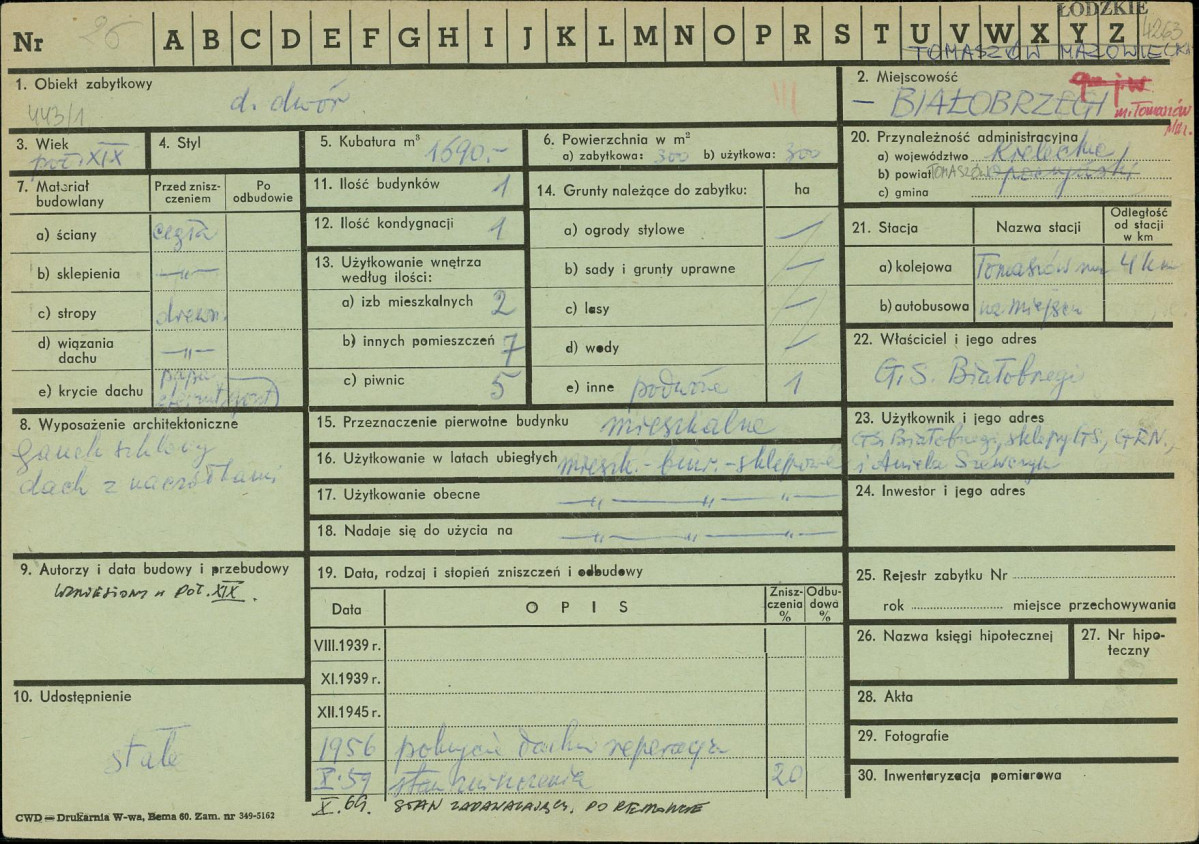 ŁÓDZKIE
Nr 26 A B C D E F G H I J K L M N O P R S T U V W X Y Z 4263
TOMASZÓW MAZOWIECKI
1. Obiekt zabytkowy
d. dwór
443/1
III
2. Miejscowość
– BIAŁOBRZEGI
m. Tomaszów
Maz.
3. Wiek
poł. XIX
4. Styl
5. Kubatura m³ 1690.-
6. Powierzchnia w m²
a) zabytkowa: 300 b) użytkowa: 300
20. Przynależność administracyjna
a) województwo Kieleckie
b) powiat TOMASZÓW
c) gmina
7. Materiał budowlany
Przed zniszczeniem
Po odbudowie
a) ściany cegła
b) sklepienia —"—
c) stropy drewn.
d) wiązania dachu —"—
e) krycie dachu papa
eternit (gont)
11. Ilość budynków 1
12. Ilość kondygnacji 1
13. Użytkowanie wnętrza według ilości:
a) izb mieszkalnych 2
b) innych pomieszczeń 7
c) piwnic 5
14. Grunty należące do zabytku: ha
a) ogrody stylowe —
b) sady i grunty uprawne —
c) lasy —
d) wody —
e) inne podwórze 1
21. Stacja
Nazwa stacji
Odległość od stacji w km
a) kolejowa Tomaszów 4 km
b) autobusowa na miejscu
22. Właściciel i jego adres
G.S. Białobrzegi
8. Wyposażenie architektoniczne
ganek szklony
dach z naczółkami
15. Przeznaczenie pierwotne budynku mieszkalne
16. Użytkowanie w latach ubiegłych mieszk.- biur.- sklepowe
17. Użytkowanie obecne —"— —"— —"—
18. Nadaje się do użycia na —"— —"— —"—
23. Użytkownik i jego adres
GS Białobrzegi, sklepy GS, GRN.,
i Aniela Szewczyk
24. Inwestor i jego adres
9. Autorzy i data budowy i przebudowy
WZNIESIONY W POŁ. XIX.
19. Data, rodzaj i stopień zniszczeń i odbudowy
Data
OPIS
Zniszczenia %
Odbudowa %
VIII.1939 r.
XI.1939 r.
XII.1945 r.
1956 pokrycie dachu reperacja
X.59 stan zniszczenia 20
X.69. STAN ZADAWALAJĄCY. PO REMONCIE
25. Rejestr zabytku Nr
rok miejsce przechowywania
26. Nazwa księgi hipotecznej
27. Nr hipoteczny
10. Udostępnienie
stałe
28. Akta
29. Fotografie
30. Inwentaryzacja pomiarowa
CWD — Drukarnia W-wa, Bema 60. Zam. nr 349-5162